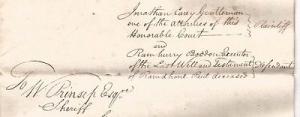 Jonathan Carey Gentleman
one of the attornies of this
Honorable Court
Plaintiff
and
Ramhurry Executor
of the Last Will and Testament
Defendant
of deceased
To W Prinsep Esqre
Sheriff